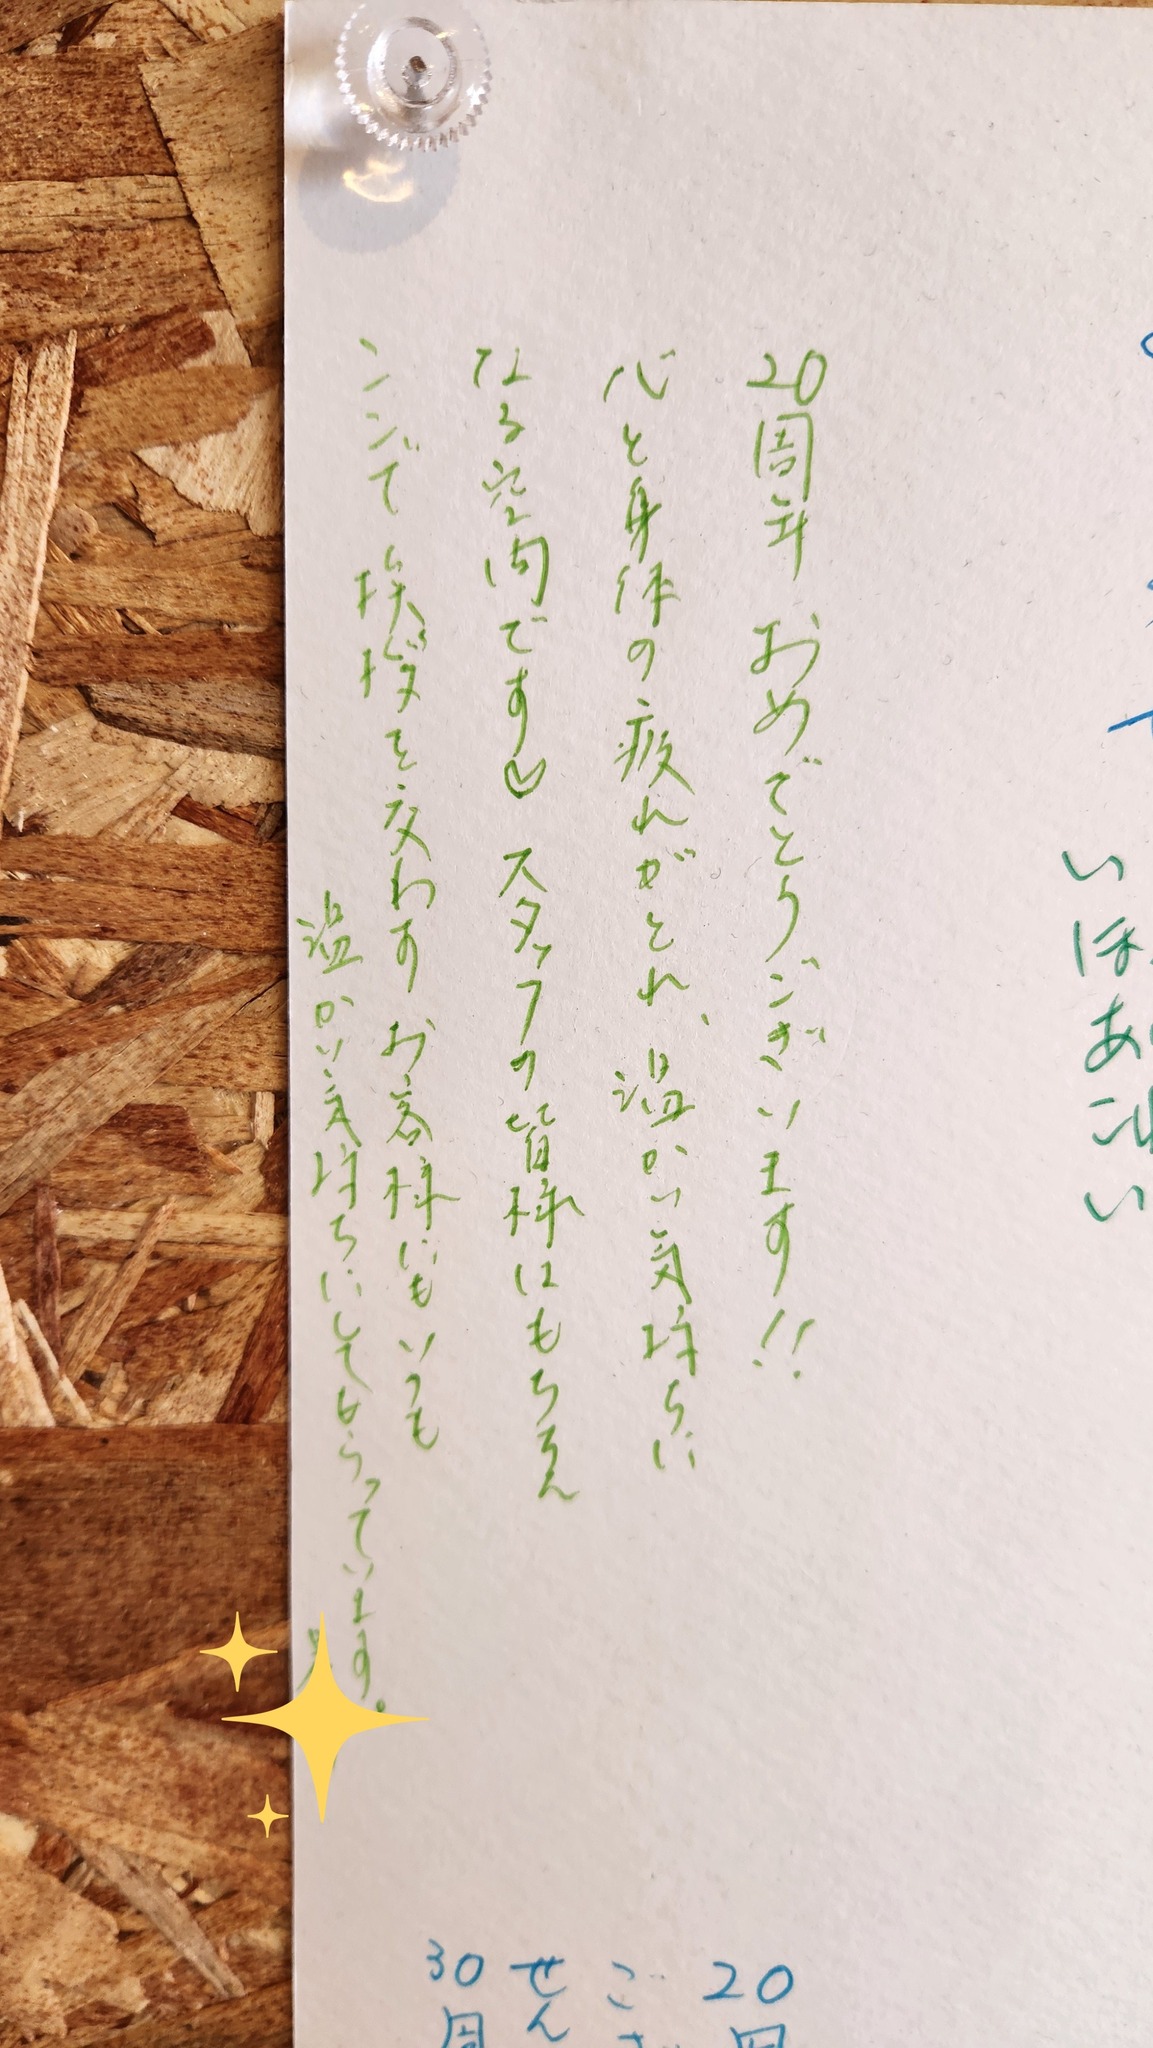 20周年 おめでとうございます!!
心と身体の疲れがとれ、温かい気持ちに
なる空間です♡ スタッフの皆様はもちろん
ここで 挨拶を交わす お客様にもいつも
温かい気持ちにしてもらっています。
い
ほ
あ
い
20周
ござ
せん
30周